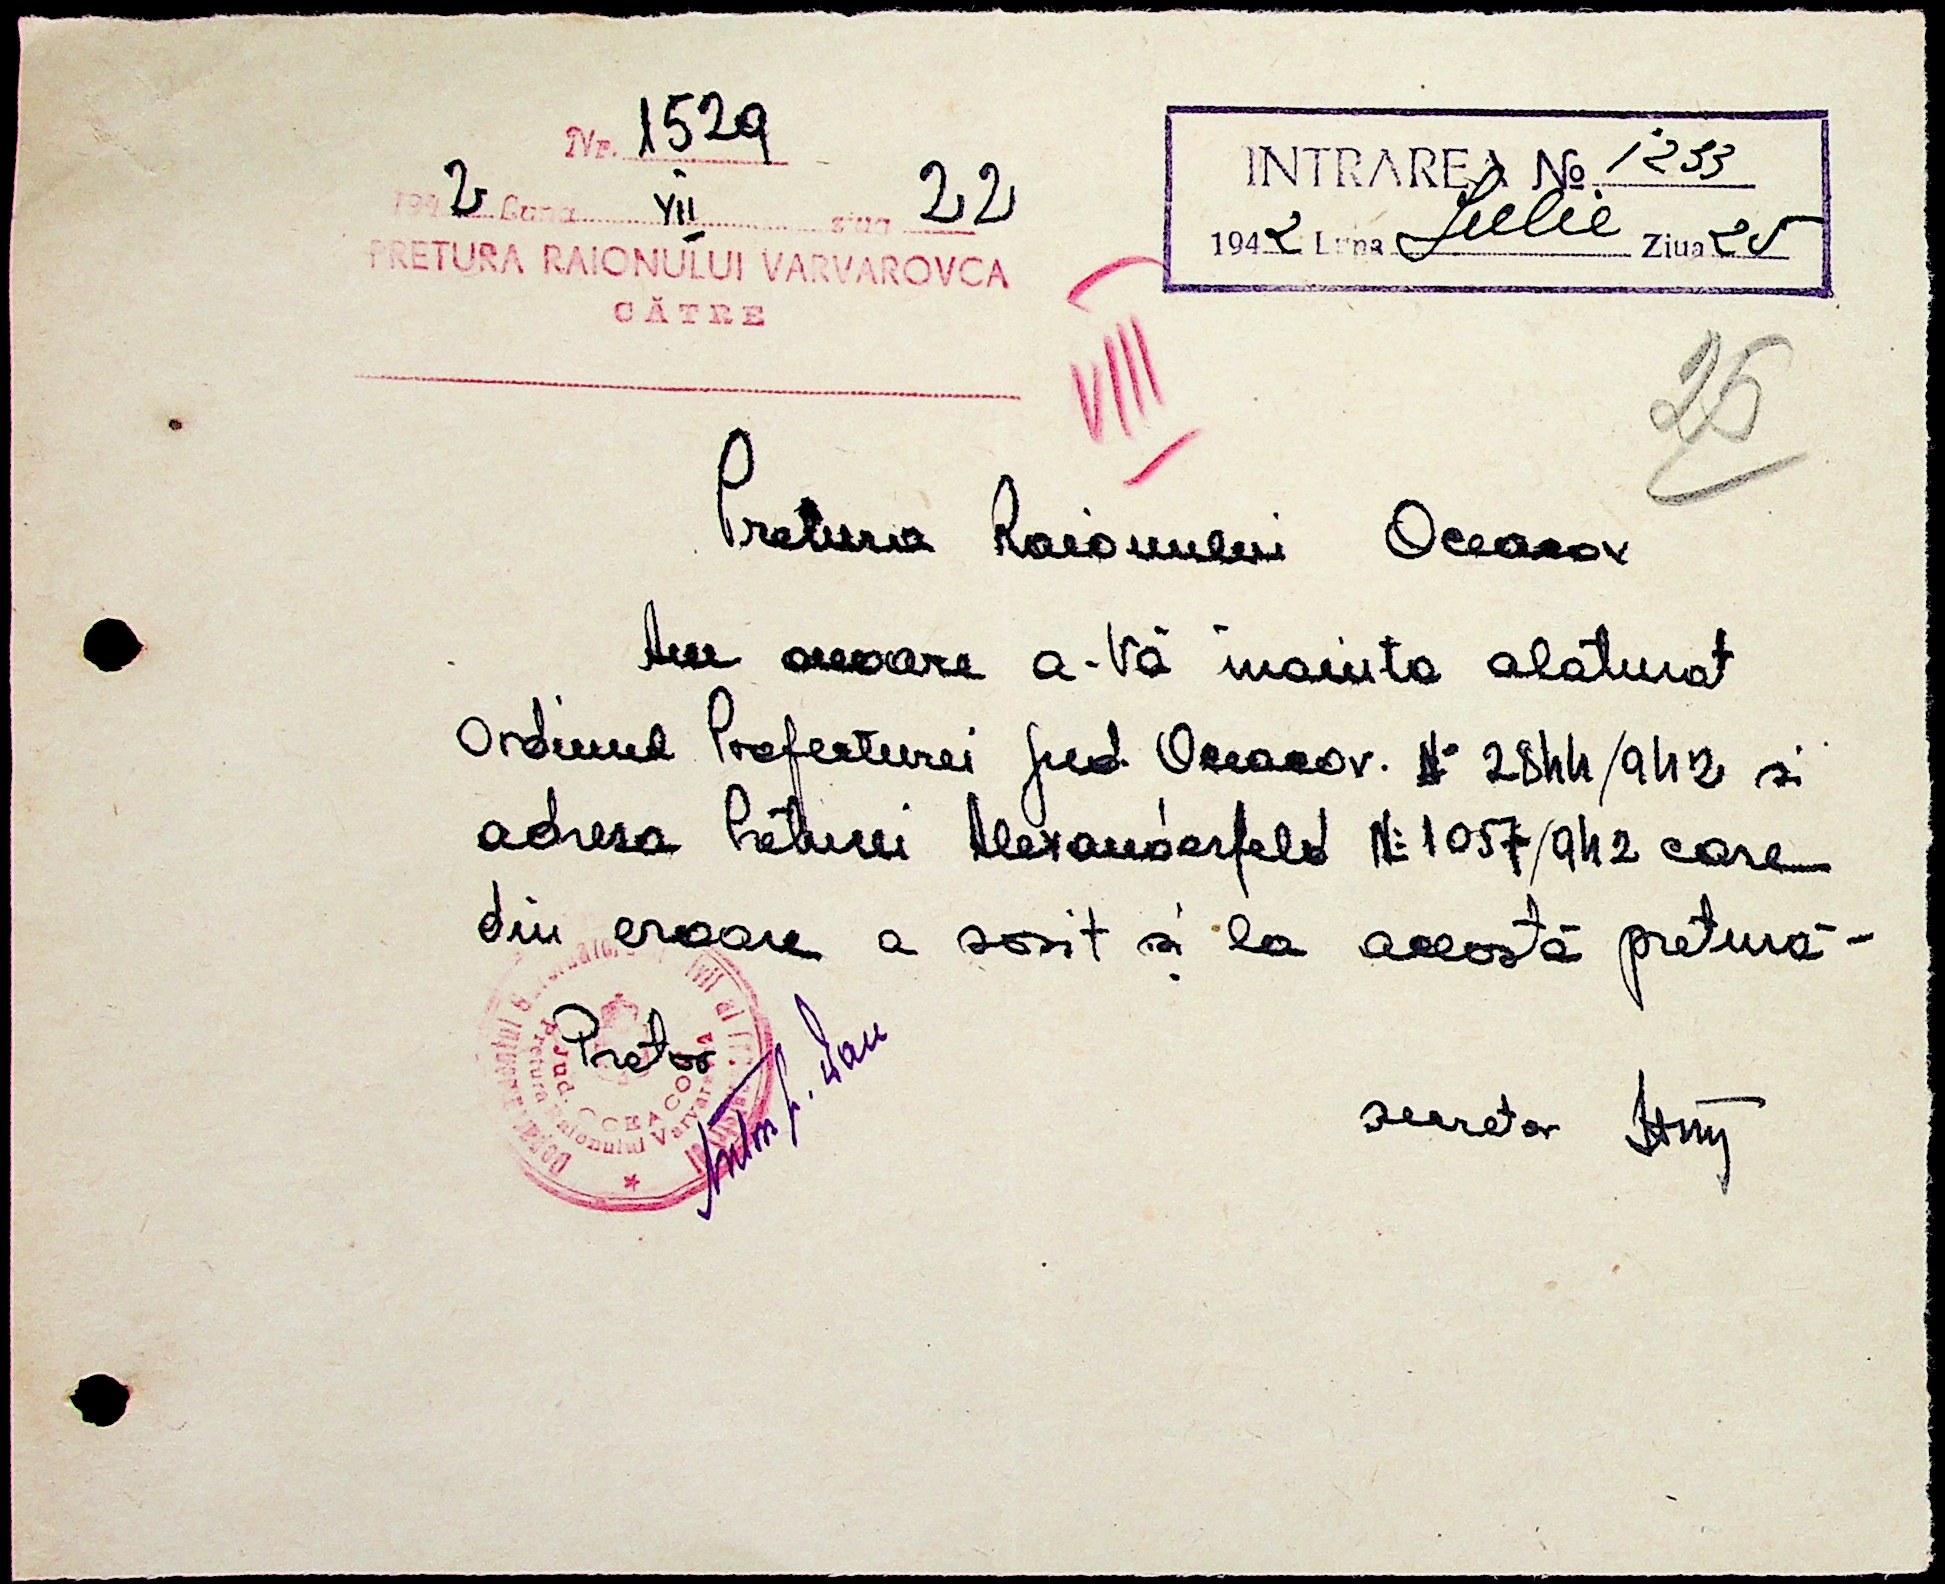 Nr. 1529
1942 Luna VII ziua 22
PRETURA RAIONULUI VARVAROVCA
CĂTRE
INTRAREA № 1233
1942 Luna Iulie Ziua 25
VIII
26
Pretura Raionului Oceacov
Am onoare a-Vă înainta alăturat
Ordinul Prefecturei Jud. Oceacov. No 2844/942 si
adresa Preturei Alexanderfeld No 1057/942 care
din eroare a sosit și la acostă pretură-
Pretor
Anton L. Dan
Jud. OCEACOV
Pretura Raionului Varvarovca
secretar